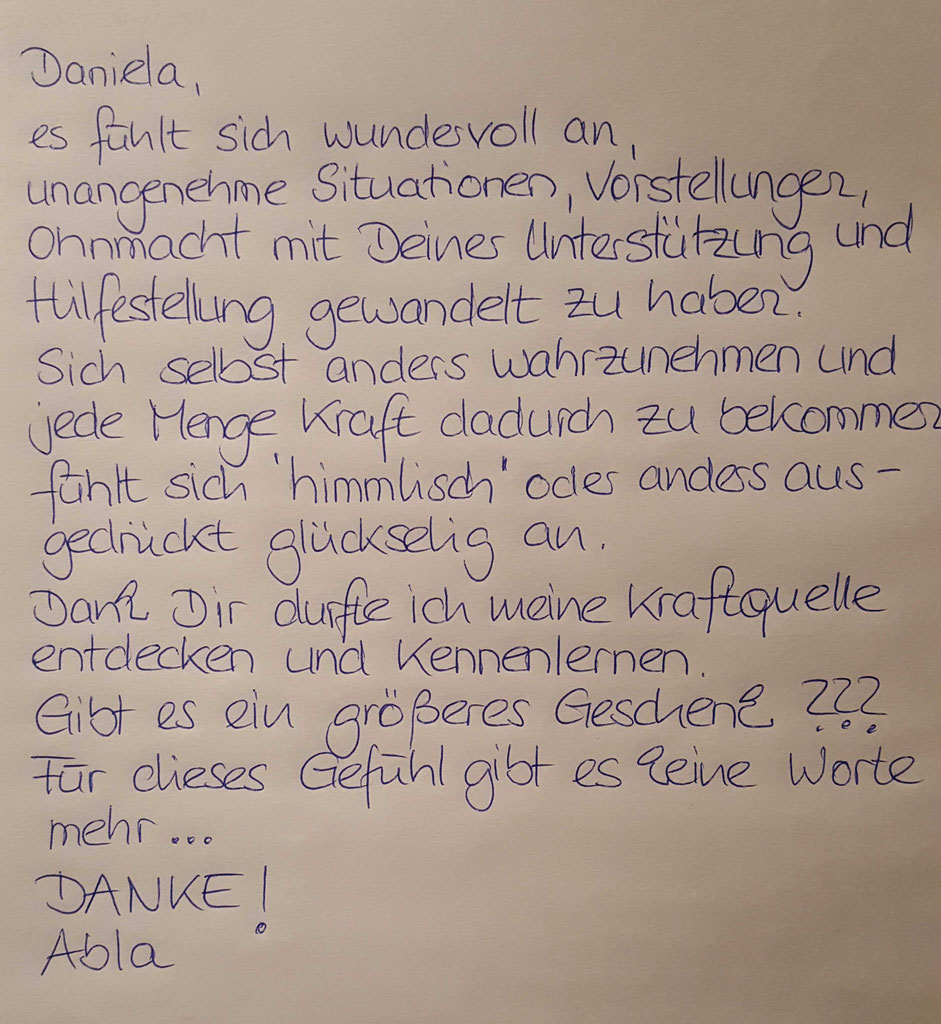 Daniela,
es fühlt sich wundervoll an,
unangenehme Situationen, Vorstellungen,
Ohnmacht mit Deiner Unterstützung und
Hilfestellung gewandelt zu haben.
Sich selbst anders wahrzunehmen und
jede Menge Kraft dadurch zu bekommen
fühlt sich 'himmlisch' oder anders aus-
gedrückt glückselig an.
Dank Dir durfte ich meine Kraftquelle
entdecken und Kennenlernen.
Gibt es ein größeres Geschenk ???
Für dieses Gefühl gibt es keine Worte
mehr...
DANKE!
Abla